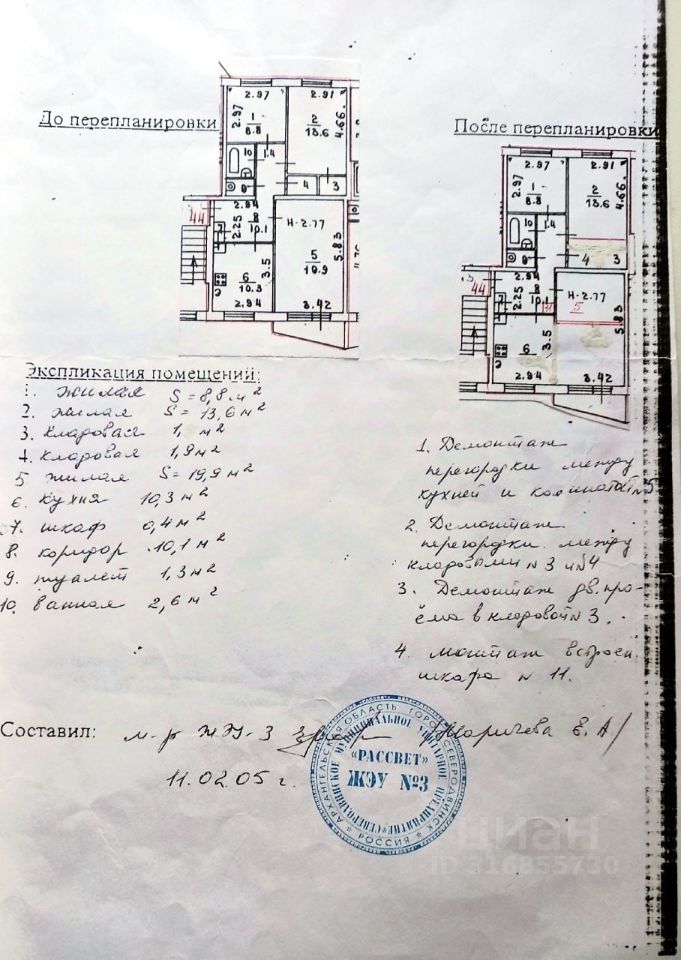 До перепланировки
2.97
2.91
2.97
1
8.8
2
13.6
4.66
10
1.4
9
4
3
2.94
44
2.25
8
10.1
Н-2.77
5
19.9
5.83
6
10.3
3.5
2.94
3.42
После перепланировки
2.97
2.91
2.97
1
8.8
2
13.6
4.66
10
1.4
9
4
3
2.94
44
2.25
8
10.1
Н-2.77
5
5.83
6
3.5
2.94
3.42
Экспликация помещений:
1. жилая S = 8,8 м²
2. жилая S = 13,6 м²
3. кладовая 1, м²
4. кладовая 1,9 м²
5 жилая S = 19,9 м²
6. кухня 10,3 м²
7. шкаф 0,4 м²
8. коридор 10,1 м²
9. туалет 1,3 м²
10. ванная 2,6 м²
1. Демонтаж
перегородки между
кухней и комнатой №5
2. Демонтаж
перегородки между
кладовыми №3 и №4
3. Демонтаж дв. про-
ёма в кладовой №3.
4. монтаж встроен.
шкафа №11.
Составил: м-р ЖЭУ-3 Е.А/
11.02.05 г.
АРХАНГЕЛЬСКАЯ ОБЛАСТЬ ГОРОД СЕВЕРОДВИНСК
РОССИЯ
СЕВЕРОДВИНСКОЕ МУНИЦИПАЛЬНОЕ УНИТАРНОЕ ПРЕДПРИЯТИЕ
«РАССВЕТ»
ЖЭУ №3
циан